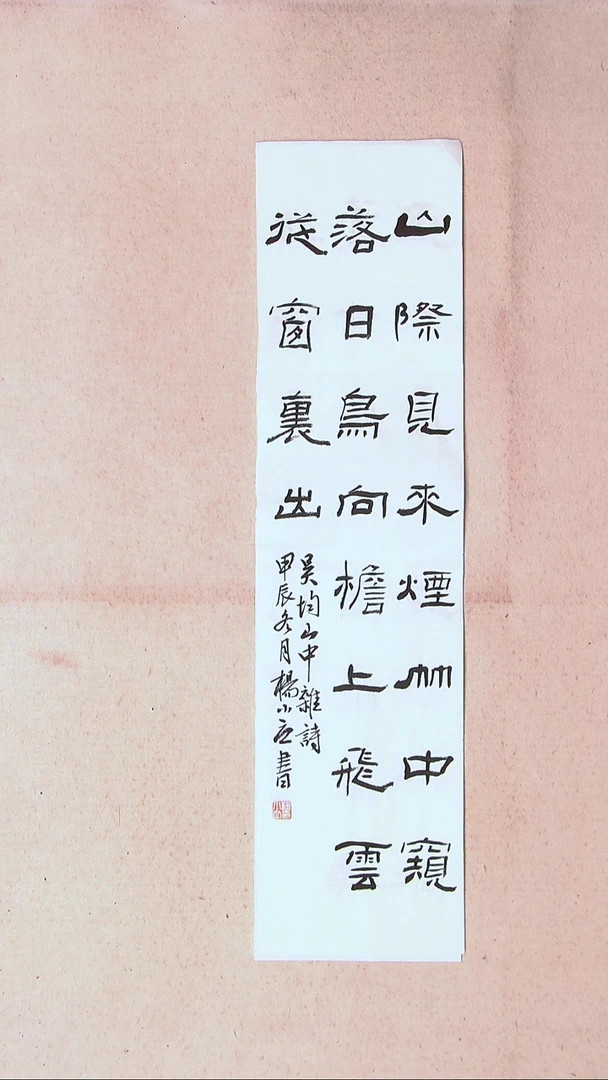 山際見來煙竹中窺
落日鳥向檐上飛雲
從窗裏出
吳均山中雜詩
甲辰冬月楊小

書